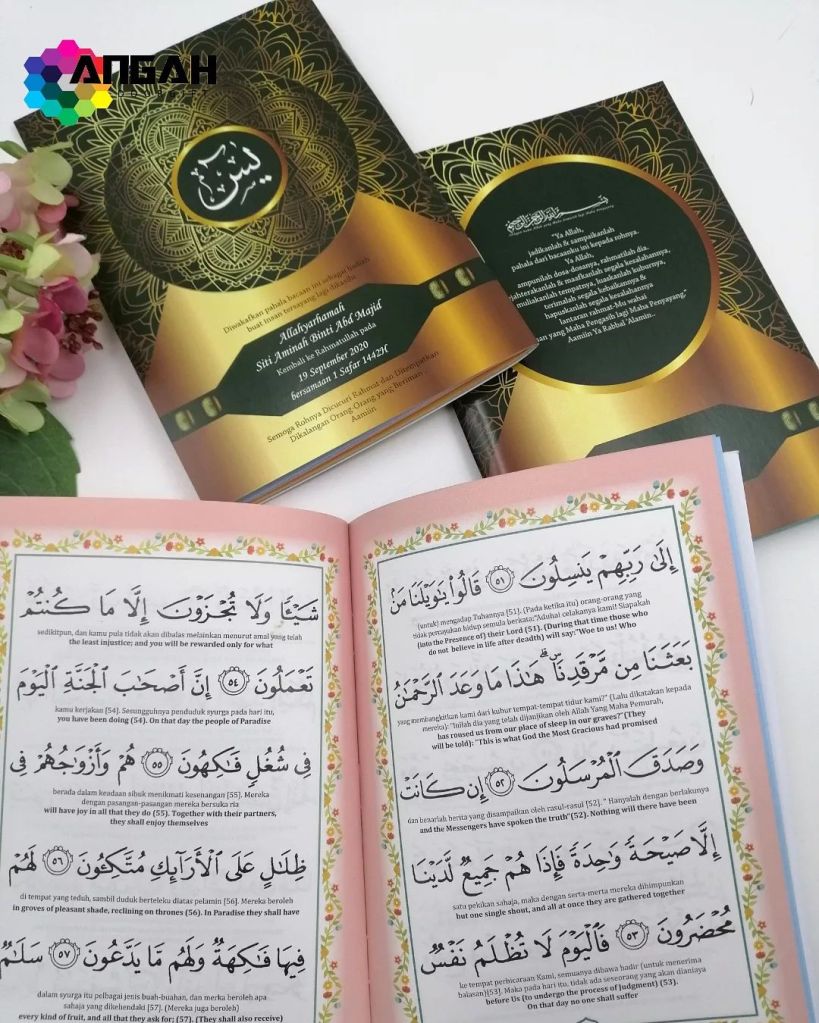 ANGAH
يس
Diwakafkan pahala bacaan ini sebagai hadiah
buat insan tersayang lagi dikasihi
Allahyarhamah
Siti Aminah Binti Abd Majid
Kembali ke Rahmatullah pada
19 September 2020
bersamaan 1 Safar 1442H
Semoga Rohnya Dicucuri Rahmat dan Ditempatkan
Dikalangan Orang-Orang yang Beriman
Aamiin
بسم الله الرحمن الرحيم
"Ya Allah,
jadikanlah & sampaikanlah
pahala dari bacaanku ini kepada rohnya.
Ya Allah,
ampunilah dosa-dosanya, rahmatilah dia,
jahterakanlah & maafkanlah segala kesalahannya,
muliakanlah tempatnya, luaskanlah kuburnya,
terimalah segala kebaikannya &
hapuskanlah segala kesalahannya
lantaran rahmat-Mu wahai
an yang Maha Pengasih lagi Maha Penyayang,"
Aamiin Ya Rabbal 'Alamin..
إِلَىٰ رَبِّهِمْ يَنسِلُونَ ٥١ قَالُوا۟ يَٰوَيْلَنَا مَنۢ
(untuk) mengadap Tuhannya [51]. (Pada ketika itu) orang-orang yang
tidak percayakan hidup semula berkata;"Aduhai celakanya kami! Siapakah
(into the Presence of) their Lord (51). (During that time those who
do not believe in life after deadth) will say:"Woe to us! Who
بَعَثَنَا مِن مَّرْقَدِنَا ۜ ۗ هَٰذَا مَا وَعَدَ ٱلرَّحْمَٰنُ
yang membangkitkan kami dari kubur tempat-tempat tidur kami?" (Lalu dikatakan kepada
mereka): "Inilah dia yang telah dijanjikan oleh Allah Yang Maha Pemurah,
has roused us from our place of sleep in our graves?"(They
will be told): "This is what God the Most Gracious had promised
وَصَدَقَ ٱلْمُرْسَلُونَ ٥٢ إِن كَانَتْ
dan benarlah berita yang disampaikan oleh rasul-rasul [52]. " Hanyalah dengan berlakunya
and the Messengers have spoken the truth"(52). Nothing will there have been
إِلَّا صَيْحَةً وَٰحِدَةً فَإِذَا هُمْ جَمِيعٌ لَّدَيْنَا
satu pekikan sahaja, maka dengan serta-merta mereka dihimpunkan
but one single shout, and all at once they are gathered together
مُحْضَرُونَ ٥٣ فَٱلْيَوْمَ لَا تُظْلَمُ نَفْسٌ
ke tempat perbicaraan Kami, semuanya dibawa hadir (untuk menerima
balasan)[53]. Maka pada hari itu, tidak ada seseorang yang akan dianiaya
before Us (to undergo the process of Judgment) (53).
On that day no one shall suffer
شَيْـًٔا وَلَا تُجْزَوْنَ إِلَّا مَا كُنتُمْ
sedikitpun, dan kamu pula tidak akan dibalas melainkan menurut amal yang telah
the least injustice; and you will be rewarded only for what
تَعْمَلُونَ ٥٤ إِنَّ أَصْحَٰبَ ٱلْجَنَّةِ ٱلْيَوْمَ
kamu kerjakan [54]. Sesungguhnya penduduk syurga pada hari itu,
you have been doing (54). On that day the people of Paradise
فِى شُغُلٍ فَٰكِهُونَ ٥٥ هُمْ وَأَزْوَٰجُهُمْ فِى
berada dalam keadaan sibuk menikmati kesenangan [55]. Mereka
dengan pasangan-pasangan mereka bersuka ria
will have joy in all that they do (55). Together with their partners,
they shall enjoy themselves
ظِلَٰلٍ عَلَى ٱلْأَرَآئِكِ مُتَّكِـُٔونَ ٥٦ لَهُمْ
di tempat yang teduh, sambil duduk berteleku diatas pelamin [56]. Mereka beroleh
in groves of pleasant shade, reclining on thrones (56). In Paradise they shall have
فِيهَا فَٰكِهَةٌ وَلَهُم مَّا يَدَّعُونَ ٥٧ سَلَٰمٌ
dalam syurga itu pelbagai jenis buah-buahan, dan merka beroleh apa
sahaja yang dikehendaki [57]. (Mereka juga beroleh)
every kind of fruit, and all that they ask for; (57). (They shall also receive)